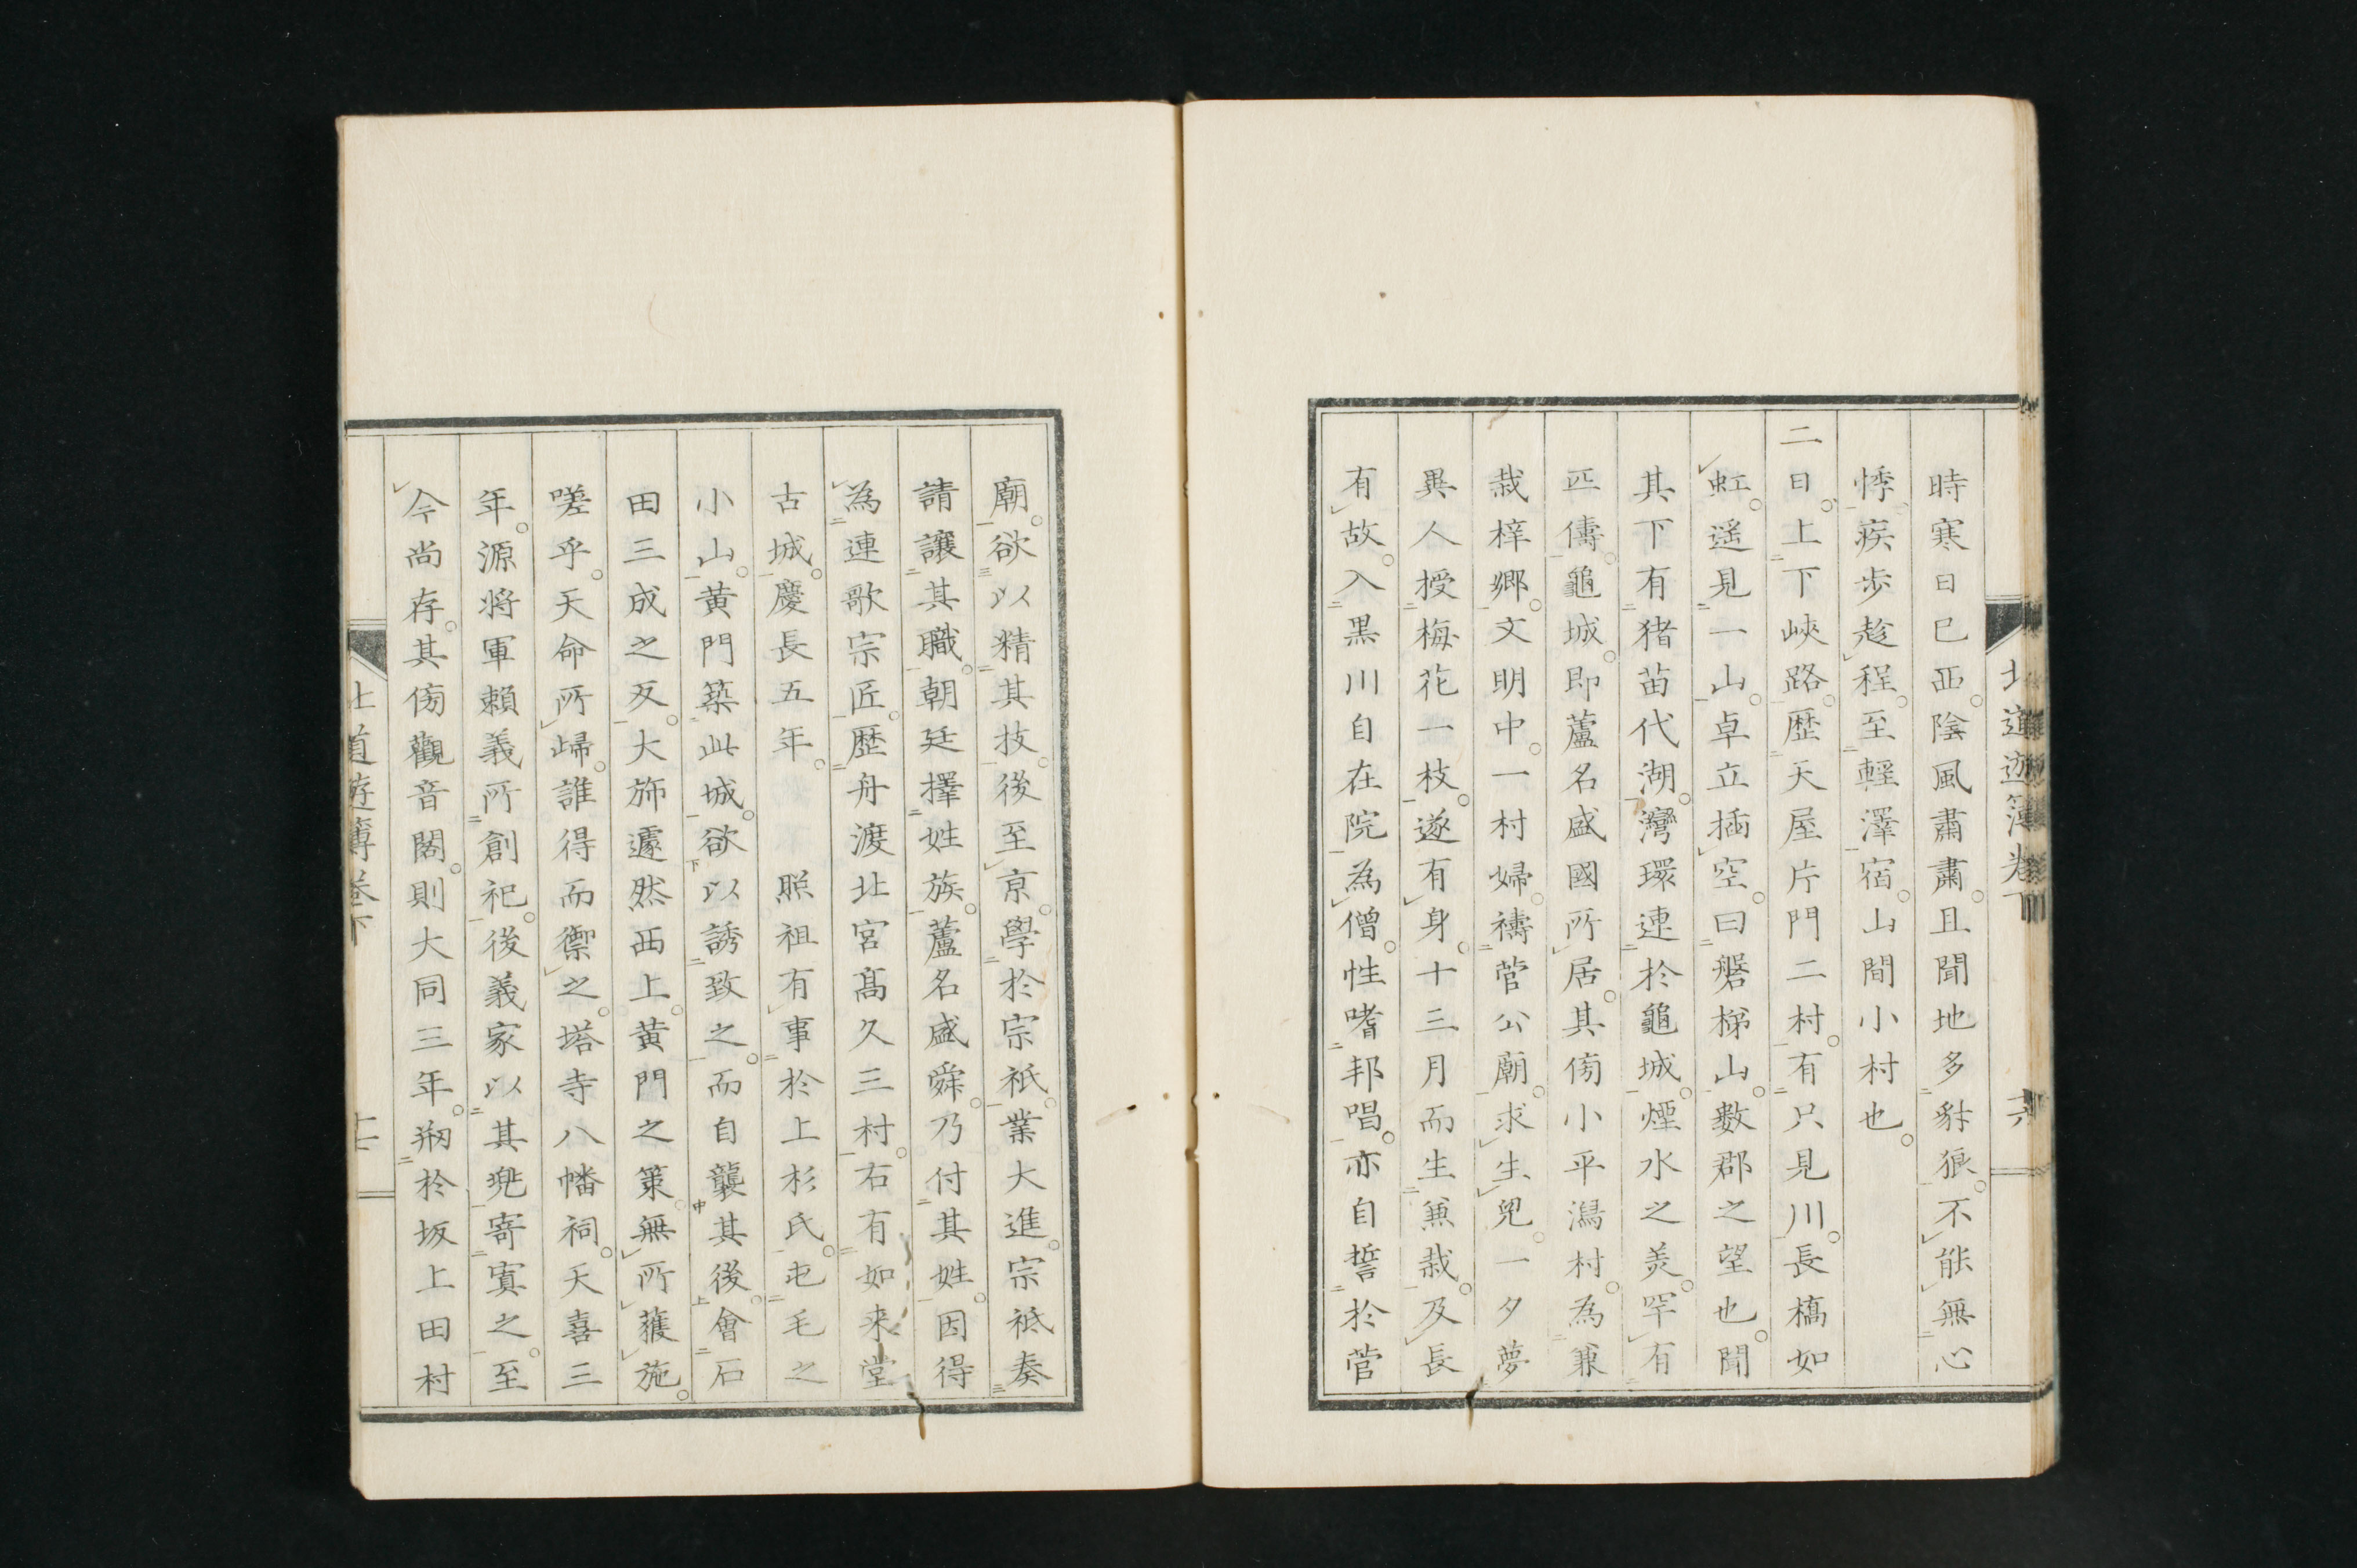 時寒日已西。陰風肅肅。且聞地多豺狼。不能無心
悸。疾歩趁程。至輕澤宿。山間小村也。
二日。上下峽路。歴天屋片門二村。有只見川。長橋如
虹。遥見一山。卓立插空。曰磐梯山。數郡之望也。聞
其下有猪苗代湖。灣環連於龜城。煙水之羙。罕有
匹儔。龜城。即蘆名盛國所居。其傍小平潟村。為兼
栽梓郷。文明中。一村婦。禱菅公廟。求生兒。一夕夢
異人授梅花一枝。遂有身。十三月而生兼栽。及長
有故。入黒川自在院。為僧。性嗜邦唱。亦自誓於菅
北道遊簿卷下
六
廟。欲以精其技。後至京。學於宗祇。業大進。宗祇奏
請讓其職。朝廷擇姓族。蘆名盛舜。乃付其姓。因得
為連歌宗匠。歴舟渡北宮髙久三村。右有如来堂
古城。慶長五年。照祖有事於上杉氏。屯毛之
小山。黄門築此城。欲以誘致之。而自襲其後。會石
田三成之反。大斾遽然西上。黄門之策。無所獲施。
嗟乎。天命所歸。誰得而禦之。塔寺八幡祠。天喜三
年。源将軍頼義所創祀。後義家以其兠寄寘之。至
今尚存。其傍觀音閣。則大同三年。剏於坂上田村
北道遊簿卷下
七